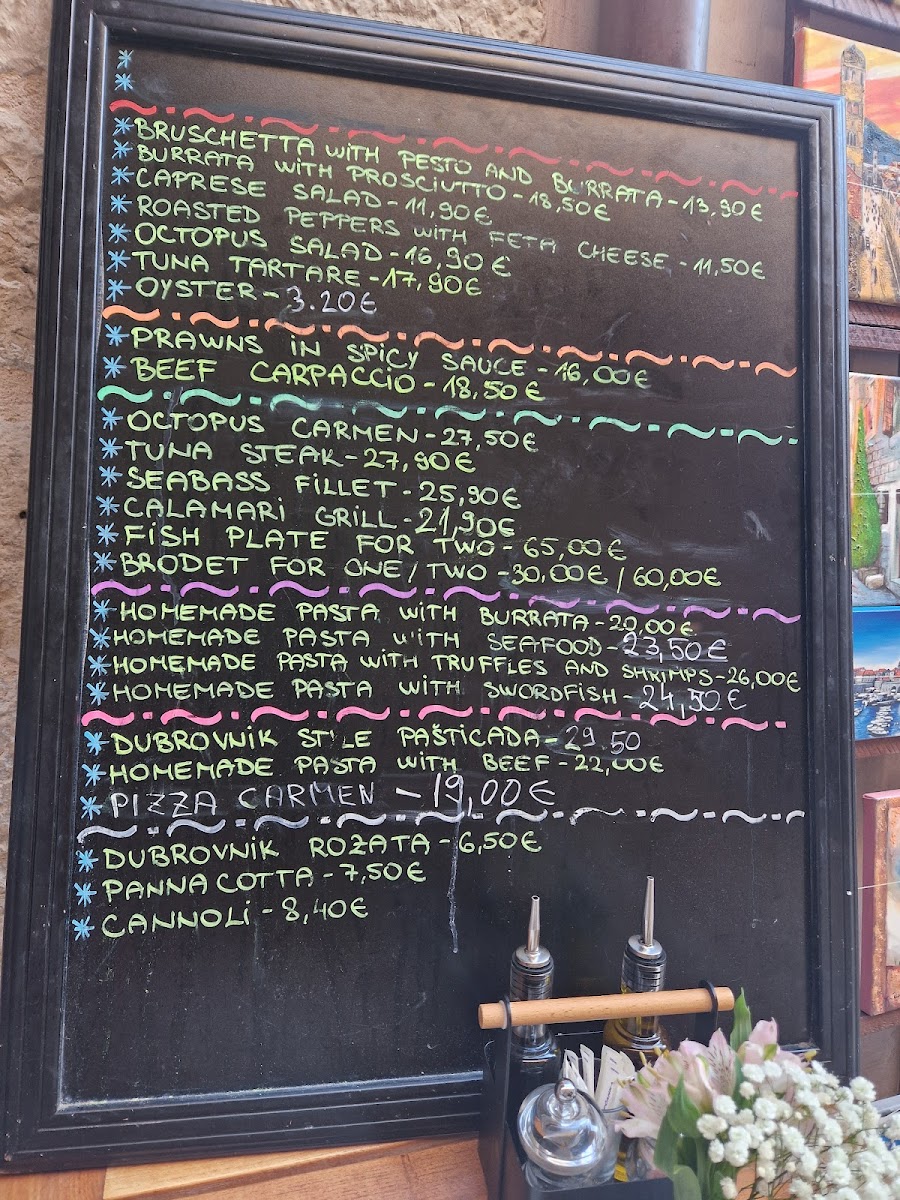 * BRUSCHETTA WITH PESTO AND BURRATA - 13,90€
* BURRATA WITH PROSCIUTTO - 18,50€
* CAPRESE SALAD - 11,90€
* ROASTED PEPPERS WITH FETA CHEESE - 11,50€
* OCTOPUS SALAD - 16,90€
* TUNA TARTARE - 17,90€
* OYSTER - 3.20€
* PRAWNS IN SPICY SAUCE - 16,00€
* BEEF CARPACCIO - 18,50€
* OCTOPUS CARMEN - 27,50€
* TUNA STEAK - 27,90€
* SEABASS FILLET - 25,90€
* CALAMARI GRILL - 21,90€
* FISH PLATE FOR TWO - 65,00€
* BRODET FOR ONE/TWO - 30,00€ / 60,00€
* HOMEMADE PASTA WITH BURRATA - 20,00€
* HOMEMADE PASTA WITH SEAFOOD - 23,50€
* HOMEMADE PASTA WITH TRUFFLES AND SHRIMPS - 26,00€
* HOMEMADE PASTA WITH SWORDFISH - 24,50€
* DUBROVNIK STYLE PAŠTICADA - 29.50
* HOMEMADE PASTA WITH BEEF - 22,00€
* PIZZA CARMEN - 19,00€
* DUBROVNIK ROŽATA - 6,50€
* PANNA COTTA - 7,50€
* CANNOLI - 8,40€